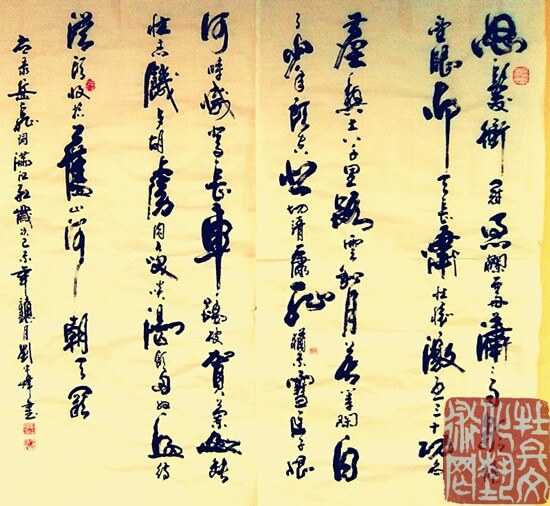 怒髮衝冠憑欄處瀟々雨歇抬
望眼仰天長嘯壯懷激烈三十功名
塵與土八千里路雲和月莫等閑白
了少年頭空悲切靖康恥猶未雪臣子恨
何時滅駕長車踏破賀蘭山缺
壯志飢餐胡虜肉笑談渴飲匈奴血待
從頭收拾舊山河朝天闕
岳飛词滿江紅歲次乙未年月劉書